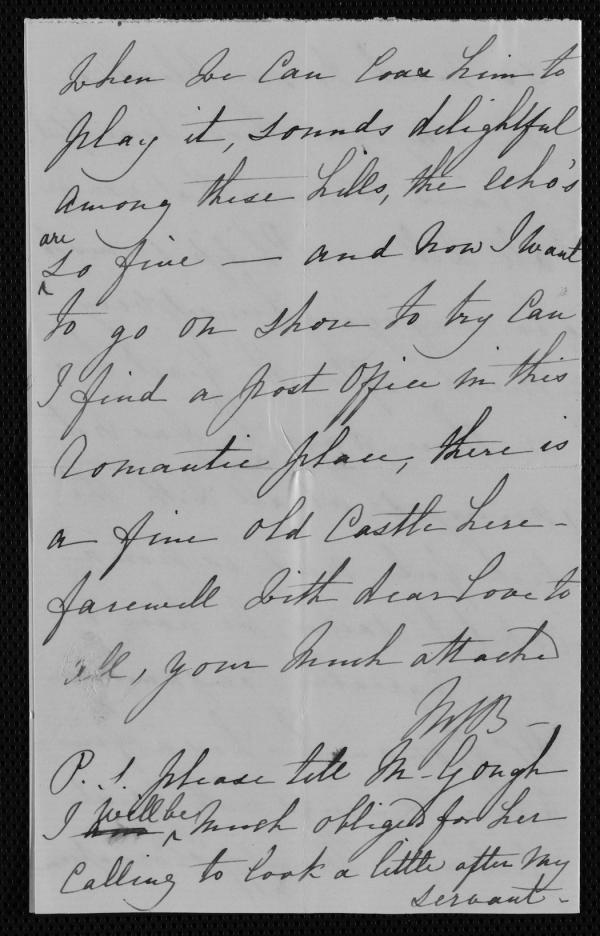 When we can coax him to
play it, sounds delightful
among these hills, the echo's
are
so fine — and now I want
to go on shore to try can
I find a post office in this
romantic place, there is
a fine old Castle here -
farewell with dear love to
all, your much attached
MJB -
P.S. please tell M- Gough
I will be much obliged for her
calling to look a little after my
servant -